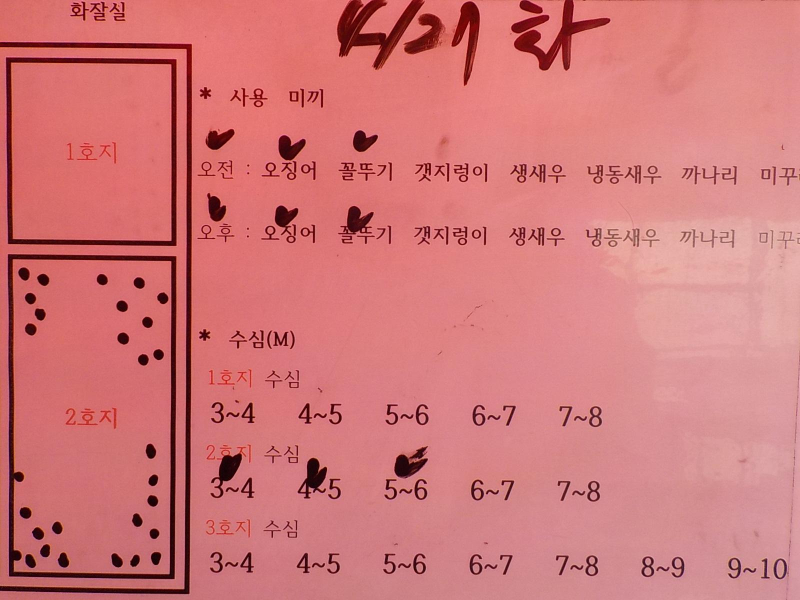 화잘실
4/27 화
1호지
* 사용 미끼
오전 : 오징어 꼴뚜기 갯지렁이 생새우 냉동새우 까나리
오후 : 오징어 꼴뚜기 갯지렁이 생새우 냉동새우 까나리
* 수심(M)
1호지 수심
3~4 4~5 5~6 6~7 7~8
2호지
2호지 수심
3~4 4~5 5~6 6~7 7~8
3호지 수심
3~4 4~5 5~6 6~7 7~8 8~9 9~10